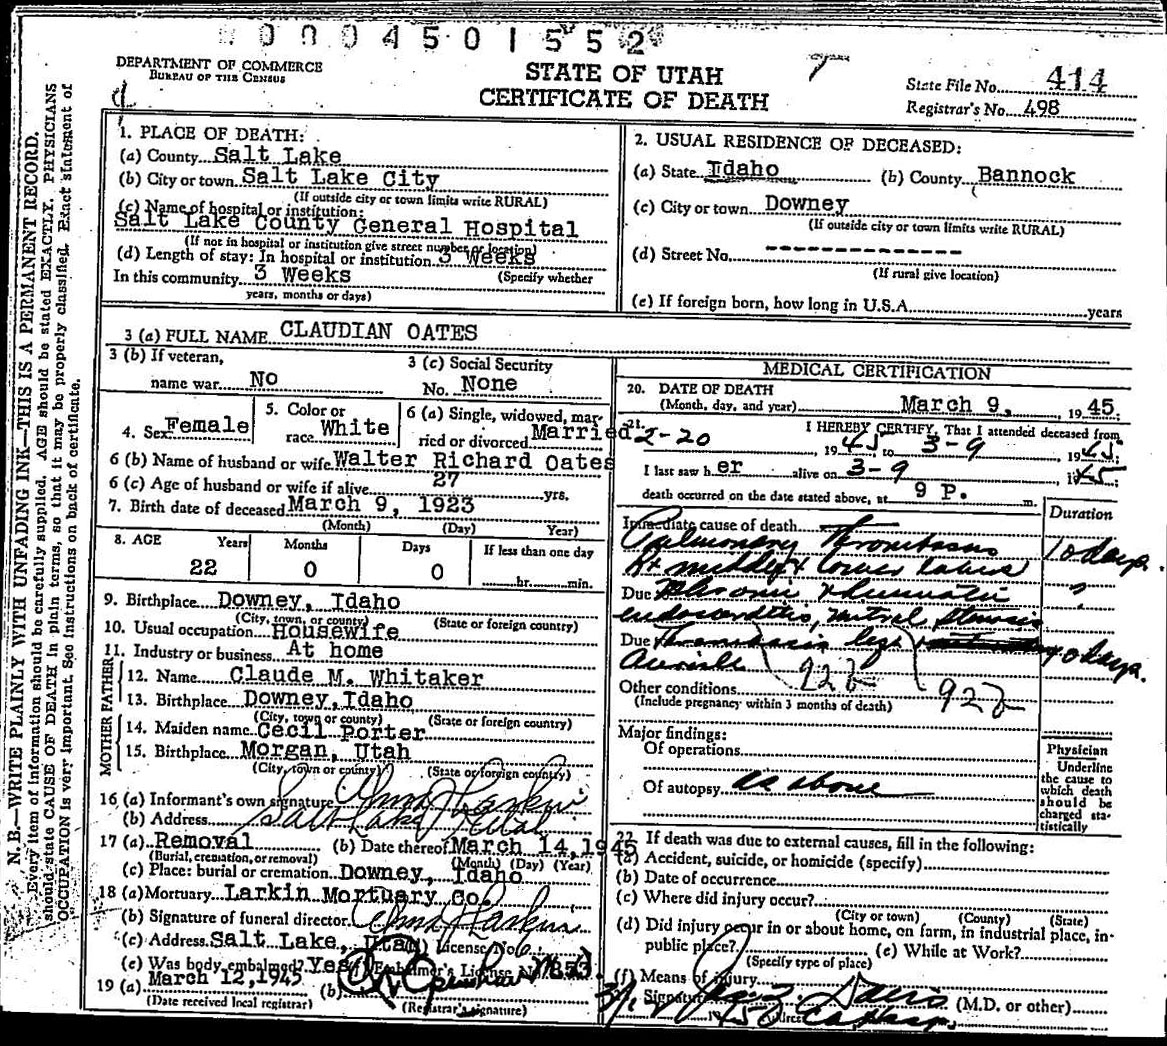 0004501552
DEPARTMENT OF COMMERCE
BUREAU OF THE CENSUS
STATE OF UTAH
CERTIFICATE OF DEATH
State File No. 414
Registrar's No. 498
N. B.—WRITE PLAINLY WITH UNFADING INK—THIS IS A PERMANENT RECORD.
Every item of information should be carefully supplied. AGE should be stated EXACTLY. PHYSICIANS
should state CAUSE OF DEATH in plain terms, so that it may be properly classified. Exact statement of
OCCUPATION is very important. See instructions on back of certificate.
1. PLACE OF DEATH:
(a) County Salt Lake
(b) City or town Salt Lake City
(If outside city or town limits write RURAL)
(c) Name of hospital or institution:
Salt Lake County General Hospital
(If not in hospital or institution give street number or location)
(d) Length of stay: In hospital or institution 3 Weeks
In this community 3 Weeks (Specify whether
years, months or days)
2. USUAL RESIDENCE OF DECEASED:
(a) State Idaho (b) County Bannock
(c) City or town Downey
(If outside city or town limits write RURAL)
(d) Street No. -------------
(If rural give location)
(e) If foreign born, how long in U.S.A. years
3 (a) FULL NAME CLAUDIAN OATES
3 (b) If veteran,
name war No
3 (c) Social Security
No. None
4. Sex Female
5. Color or
race White
6 (a) Single, widowed, mar-
ried or divorced Married
6 (b) Name of husband or wife Walter Richard Oates
6 (c) Age of husband or wife if alive 27 yrs.
7. Birth date of deceased March 9, 1923
(Month) (Day) Year)
8. AGE Years Months Days If less than one day
22 0 0 hr. min.
9. Birthplace Downey, Idaho
(City, town, or county) (State or foreign country)
10. Usual occupation Housewife
11. Industry or business At home
FATHER
12. Name Claude M. Whitaker
13. Birthplace Downey, Idaho
(City, town or county) (State or foreign country)
MOTHER
14. Maiden name Cecil Porter
15. Birthplace Morgan, Utah
(City, town or county) (State or foreign country)
16 (a) Informant's own signature Alma Larkin
(b) Address Salt Lake Utah
17 (a) Removal (b) Date thereof March 14, 1945
(Burial, cremation, or removal) (Month) (Day) (Year)
(c) Place: burial or cremation Downey, Idaho
18 (a) Mortuary Larkin Mortuary Co.
(b) Signature of funeral director Alma Larkin
(c) Address Salt Lake, Utah (d) License No. 6
(e) Was body embalmed? Yes (f) Embalmer's License No. 353
19 (a) March 12, 1945 (b)
(Date received local registrar) (Registrar's signature)
MEDICAL CERTIFICATION
20. DATE OF DEATH
(Month, day, and year) March 9, 1945.
21. I HEREBY CERTIFY, That I attended deceased from
2-20 1945 to 3-9 1945.
I last saw her alive on 3-9 1945;
death occurred on the date stated above, at 9 P. m.
Duration
Immediate cause of death
Pulmonary Thrombosis 10 days.
Rt middle & lower lobes
Due Chronic Rheumatic ?
endocarditis, mitral stenosis
Due thrombosis legs 40 days.
Auricle 92b 92b
Other conditions
(Include pregnancy within 3 months of death)
Major findings:
Of operations
Of autopsy as above
Physician
Underline
the cause to
which death
should be
charged sta-
tistically
22. If death was due to external causes, fill in the following:
(a) Accident, suicide, or homicide (specify)
(b) Date of occurrence
(c) Where did injury occur?
(City or town) (County) (State)
(d) Did injury occur in or about home, on farm, in industrial place, in-
public place? (e) While at Work?
(Specify type of place)
(f) Means of injury
Signature Davis (M.D. or other)
Address Co Hosp.